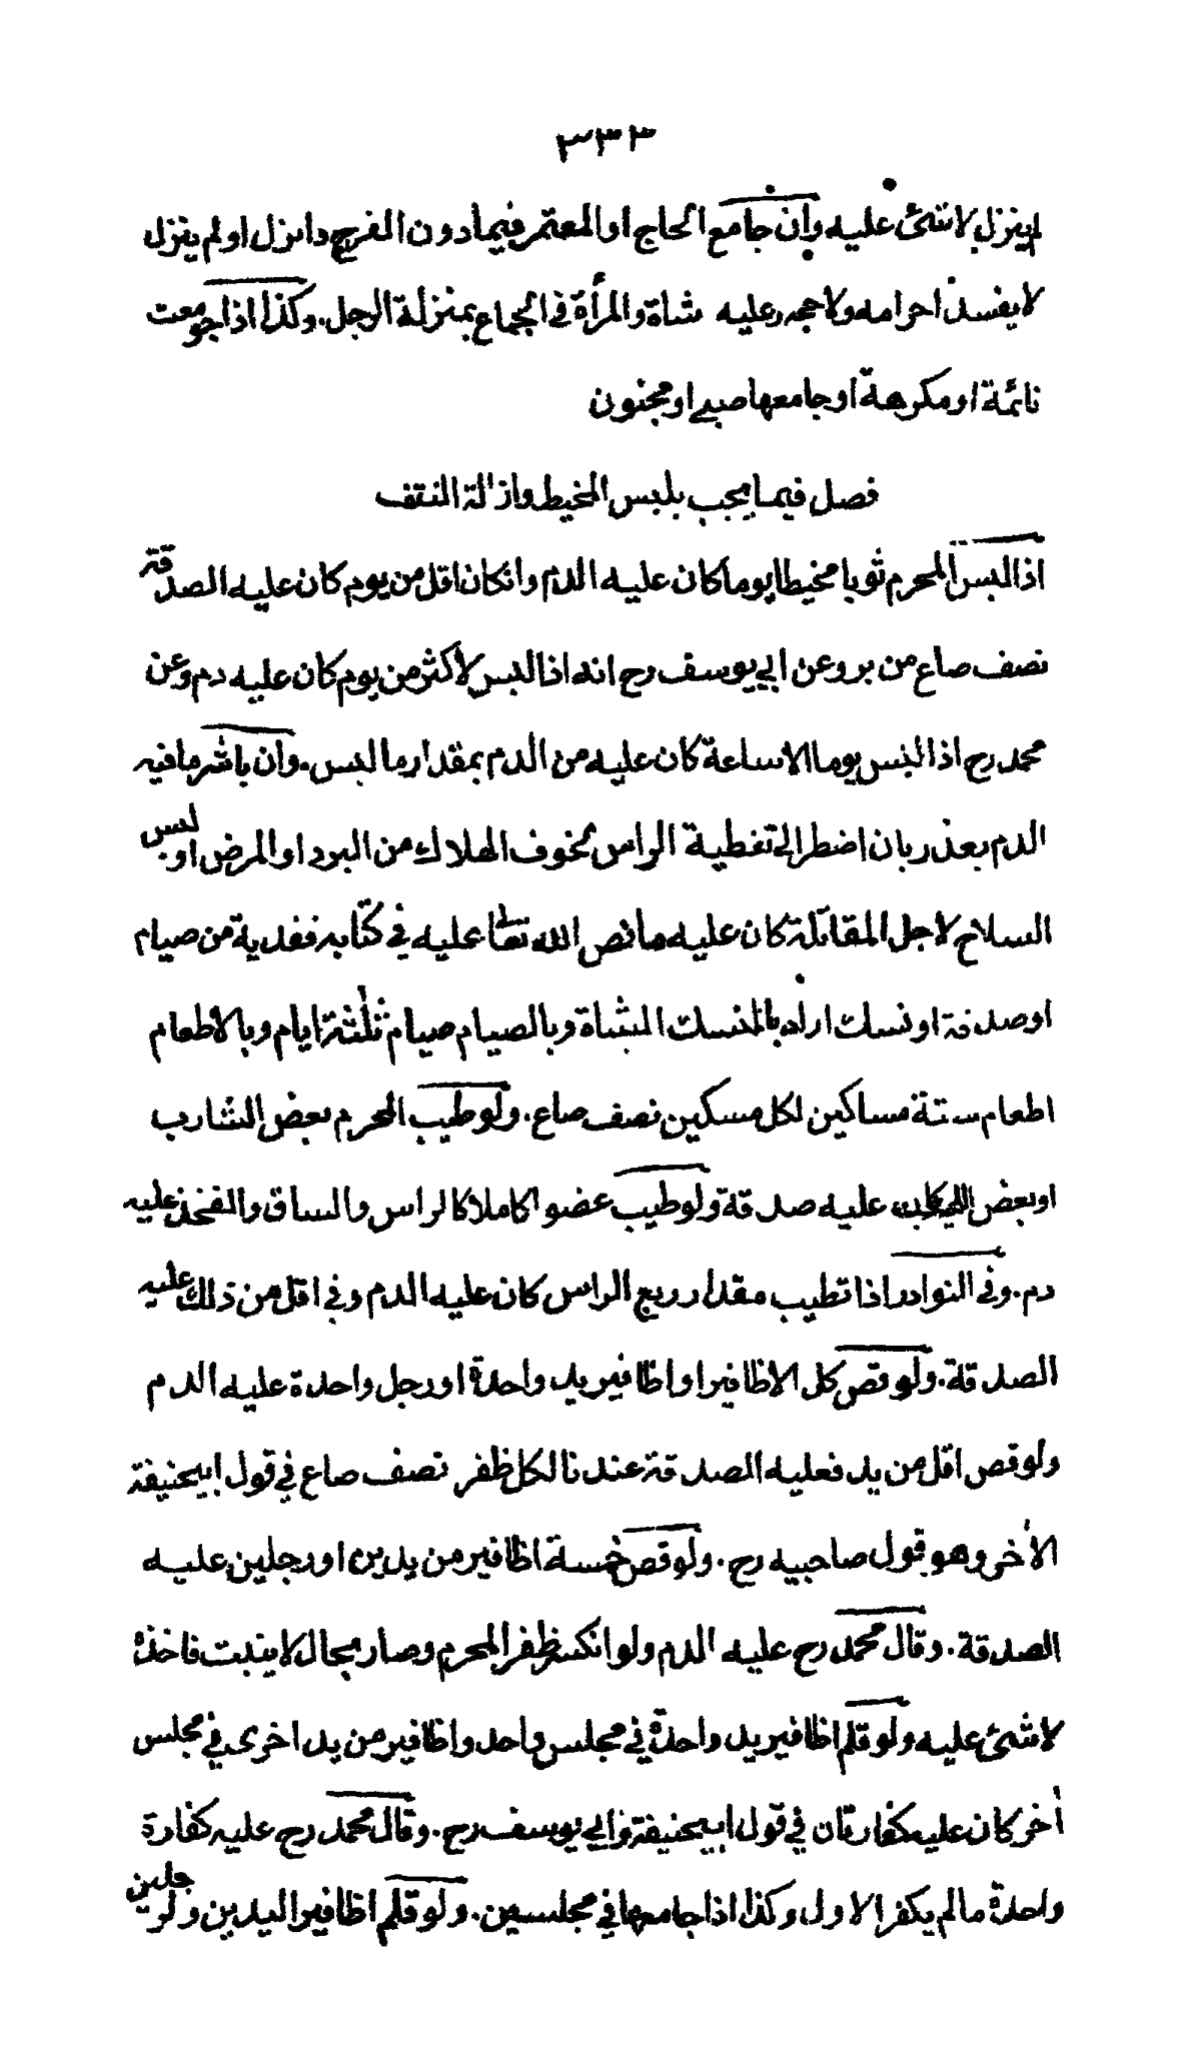 ٣٣٣
لم ينزل لا شئ عليه وان جامع الحاج او المعتمر فيما دون الفرج وانزل او لم ينزل
لا يفسد احرامه ولا حجه وعليه شاة والمرأة في الجماع بمنزلة الرجل. وكذا اذا جومعت
نائمة او مكرهة او جامعها صبي او مجنون
فصل فيما يجب بلبس المخيط وازالة التفث
اذا لبس المحرم ثوبا مخيطا يوما كان عليه الدم وانكان اقل من يوم كان عليه الصدقة
نصف صاع من بر وعن ابي يوسف رح انه اذا لبس لاكثر من يوم كان عليه دم وعن
محمد رح اذا لبس يوما الا ساعة كان عليه من الدم بمقدار ما لبس. وان باشر ما فيه
الدم بعذر بان اضطر الى تغطية الراس لخوف الهلاك من البرد او المرض او لبس
السلاح لاجل المقاتلة كان عليه ما نص الله تعا عليه في كتابه ففدية من صيام
او صدقة او نسك اراد بالنسك الشاة وبالصيام صيام ثلثة ايام وبالاطعام
اطعام ستة مساكين لكل مسكين نصف صاع. ولو طيب المحرم بعض الشارب
او بعض اللحية كان عليه صدقة ولو طيب عضوا كاملا كالراس والساق والفخذ عليه
دم. وفي النوادر اذا تطيب مقدار ربع الراس كان عليه الدم وفي اقل من ذلك عليه
الصدقة. ولو قص كل الاظافير او اظافير يد واحدة او رجل واحدة عليه الدم
ولو قص اقل من يد فعليه الصدقة عندنا لكل ظفر نصف صاع في قول ابيحنيفة
الأخر وهو قول صاحبيه رح. ولو قص خمسة اظافير من يدين او رجلين عليه
الصدقة. وقال محمد رح عليه الدم ولو انكسر ظفر المحرم وصار بحال لا ينبت فاخذه
لا شئ عليه ولو قلم اظافير يد واحدة في مجلس واحد واظافير من يد اخرى في مجلس
أخر كان عليه كفارتان في قول ابيحنيفة وابي يوسف رح. وقال محمد رح عليه كفارة
واحدة ما لم يكفر الاول وكذا اذا جامعها في مجلسين. ولو قلم اظافير اليدين والرجلين